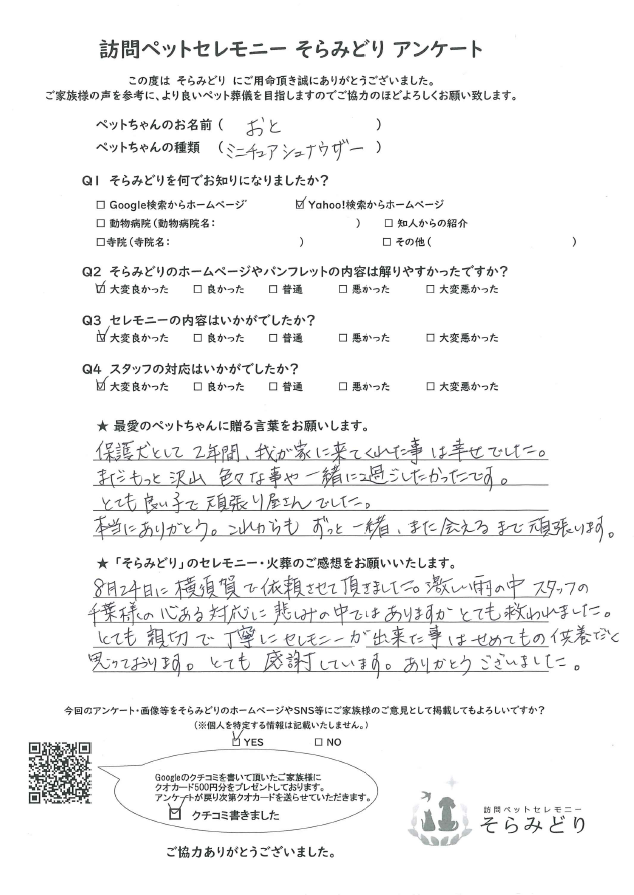 訪問ペットセレモニー そらみどり アンケート
この度は そらみどり にご用命頂き誠にありがとうございました。
ご家族様の声を参考に、より良いペット葬儀を目指しますのでご協力のほどよろしくお願い致します。
ペットちゃんのお名前 ( おと )
ペットちゃんの種類 ( ミニチュアシュナウザー )
Q1 そらみどりを何でお知りになりましたか?
□ Google検索からホームページ ☑ Yahoo!検索からホームページ
□ 動物病院(動物病院名: ) □ 知人からの紹介
□寺院(寺院名: ) □ その他( )
Q2 そらみどりのホームページやパンフレットの内容は解りやすかったですか?
☑ 大変良かった □ 良かった □ 普通 □ 悪かった □ 大変悪かった
Q3 セレモニーの内容はいかがでしたか?
☑ 大変良かった □ 良かった □ 普通 □ 悪かった □ 大変悪かった
Q4 スタッフの対応はいかがでしたか?
☑ 大変良かった □ 良かった □ 普通 □ 悪かった □ 大変悪かった
★ 最愛のペットちゃんに贈る言葉をお願いします。
保護犬として 2年間、我が家に来てくれた事は幸せでした。
まだもっと沢山 色々な事や一緒に過ごしたかったです。
とても良い子で頑張り屋さんでした。
本当にありがとう。これからも ずっと一緒、また会えるまで頑張ります。
★ 「そらみどり」のセレモニー・火葬のご感想をお願いいたします。
8月24日に横須賀で依頼させて頂きました。激しい雨の中 スタッフの
千葉様の心ある対応に悲しみの中ではありますがとても救われました。
とても親切で丁寧にセレモニーが出来た事はせめてもの供養だと
思っております。とても感謝しています。ありがとうございました。
今回のアンケート・画像等をそらみどりのホームページやSNS等にご家族様のご意見として掲載してもよろしいですか?
(※個人を特定する情報は記載いたしません。)
☑ YES □ NO
Googleのクチコミを書いて頂いたご家族様に
クオカード500円分をプレゼントしております。
アンケートが戻り次第クオカードを送らせていただきます。
☑ クチコミ書きました
訪問ペットセレモニー
そらみどり
ご協力ありがとうございました。